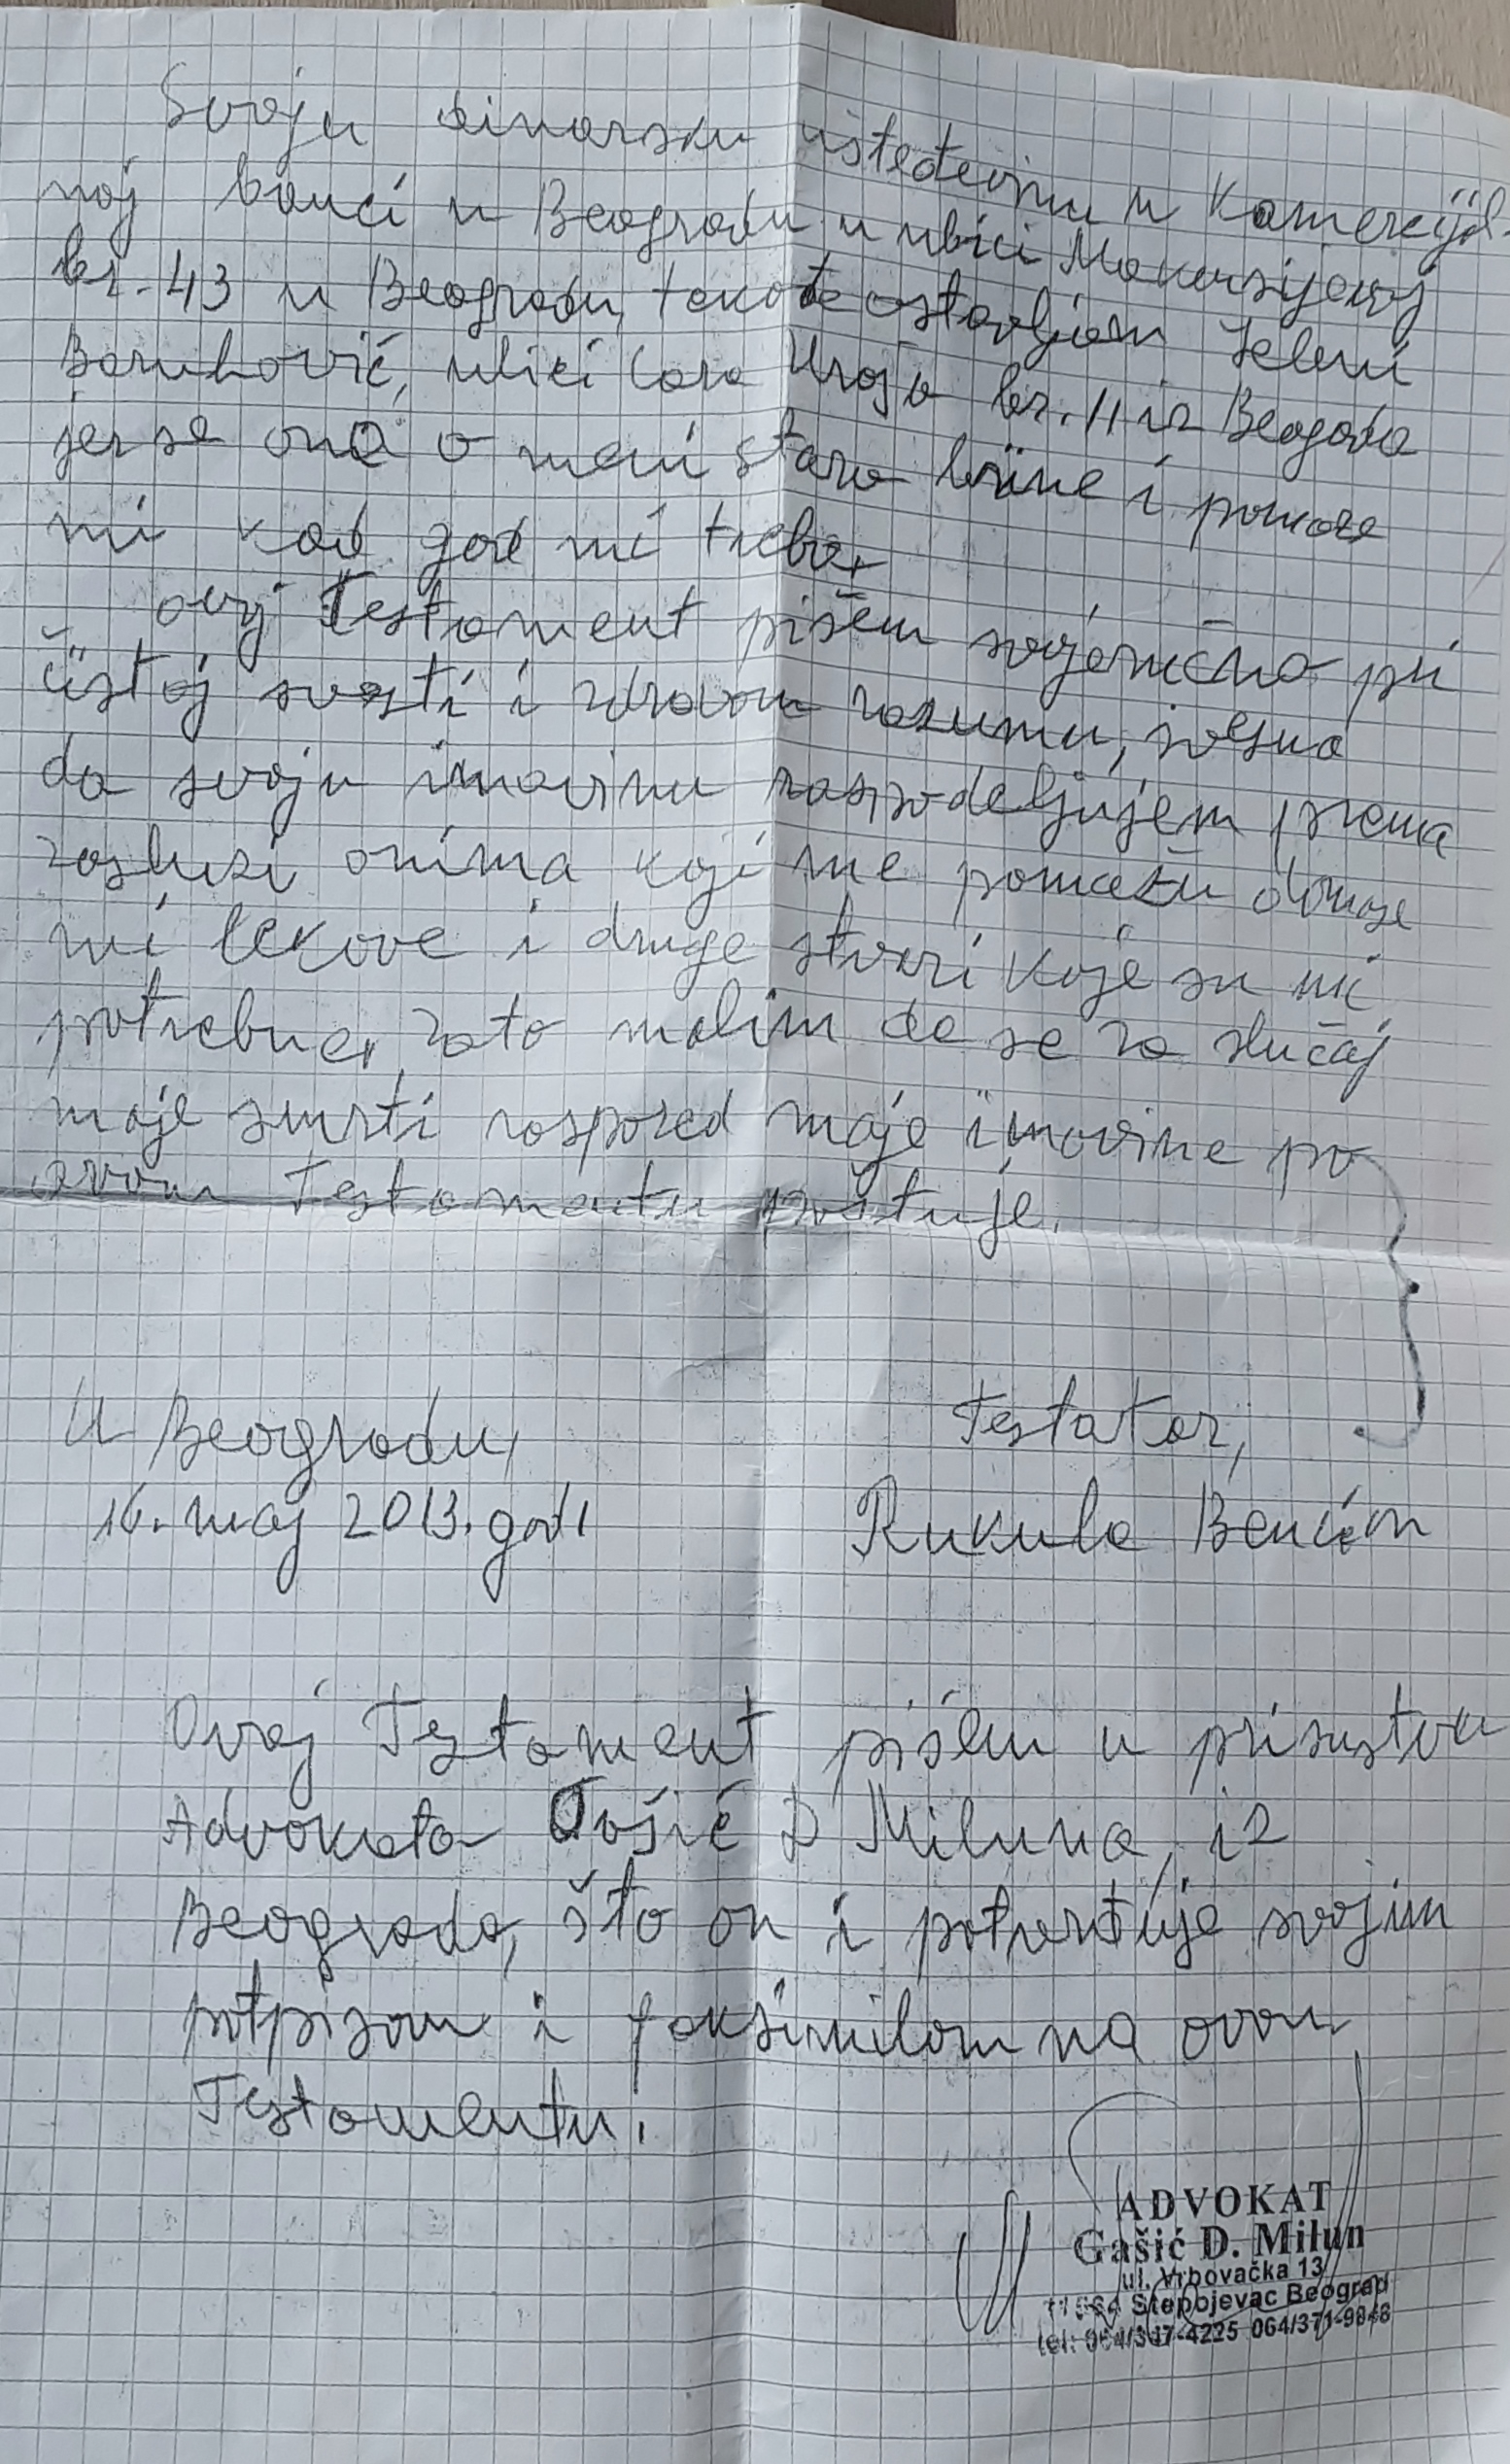 Svoju dinarsku ušteđevinu u Komercijal-
noj banci u Beogradu u ulici Makensijevoj
br. 43 u Beogradu, takođe ostavljam Jeleni
Baruhović, ulici Cara Uroša br. 11 iz Beograda
jer se ona o meni stara brine i pomaže
mi kad god mi treba,
Ovaj Testament pišem svojeručno pri
čistoj svesti i zdravom razumu, svesna
da svoju imovinu raspodeljujem prema
zasluzi onima koji me pomažu donose
mi lekove i druge stvari koje su mi
potrebne, zato molim da se za slučaj
moje smrti raspored moje imovine po
ovom Testamentu poštuje.
U Beogradu,
16. maj 2013. god,
Testator,
Rukula Bencion
Ovaj Testament pišem u prisustvu
Advokata Gošić D Miluna, iz
Beograda, što on i potvrđuje svojim
potpisom i faksimilom na ovom
Testamentu.
ADVOKAT
Gašić D. Milun
ul. Vrbovačka 13
Stepojevac Beograd
tel: 064/367-4225 064/371-9848